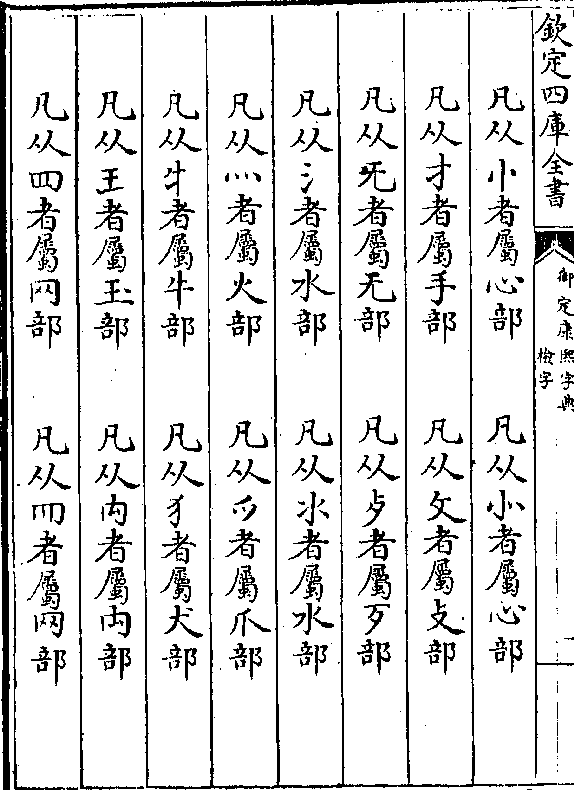 欽定四庫全書
御定康熙字典
檢字
凡从忄者屬心部　凡从㣺者屬心部
凡从扌者屬手部　凡从攵者屬攴部
凡从旡者屬无部　凡从歺者屬歹部
凡从氵者屬水部　凡从氺者屬水部
凡从灬者屬火部　凡从爫者屬爪部
凡从牜者屬牛部　凡从犭者屬犬部
凡从王者屬玉部　凡从内者屬禸部
凡从罒者屬网部　凡从⺲者屬网部